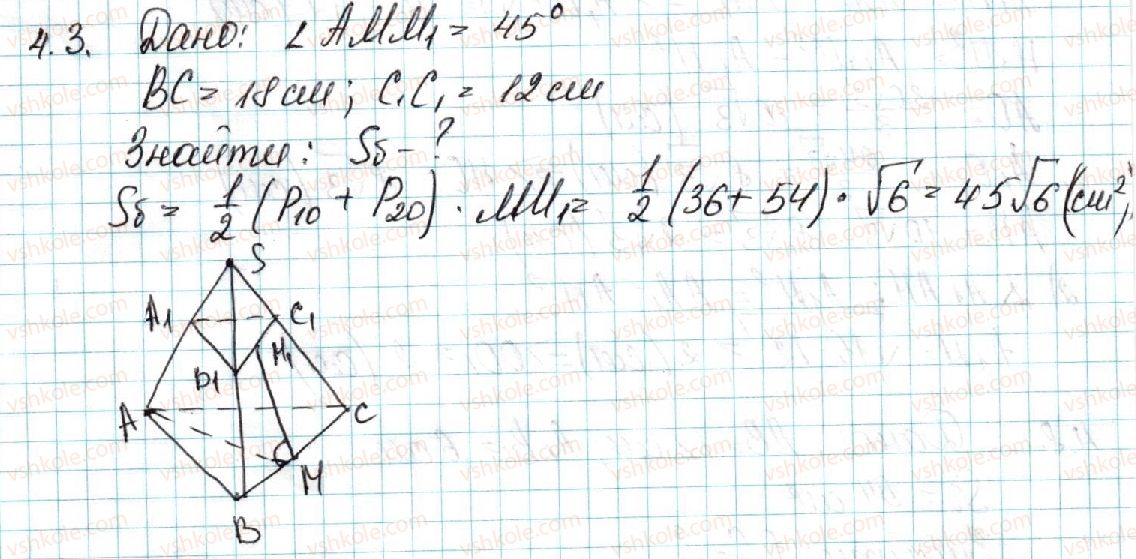 4.3. Дано: ∠AMM₁ = 45°
BC = 18 см; C₁C₁ = 12 см
Знайти: Sδ - ?
Sδ = 1/2 (P₁₀ + P₂₀) · MM₁ = 1/2 (36 + 54) · √6 = 45√6 (см²),
S
A₁
C₁
M₁
B₁
A
C
M
B